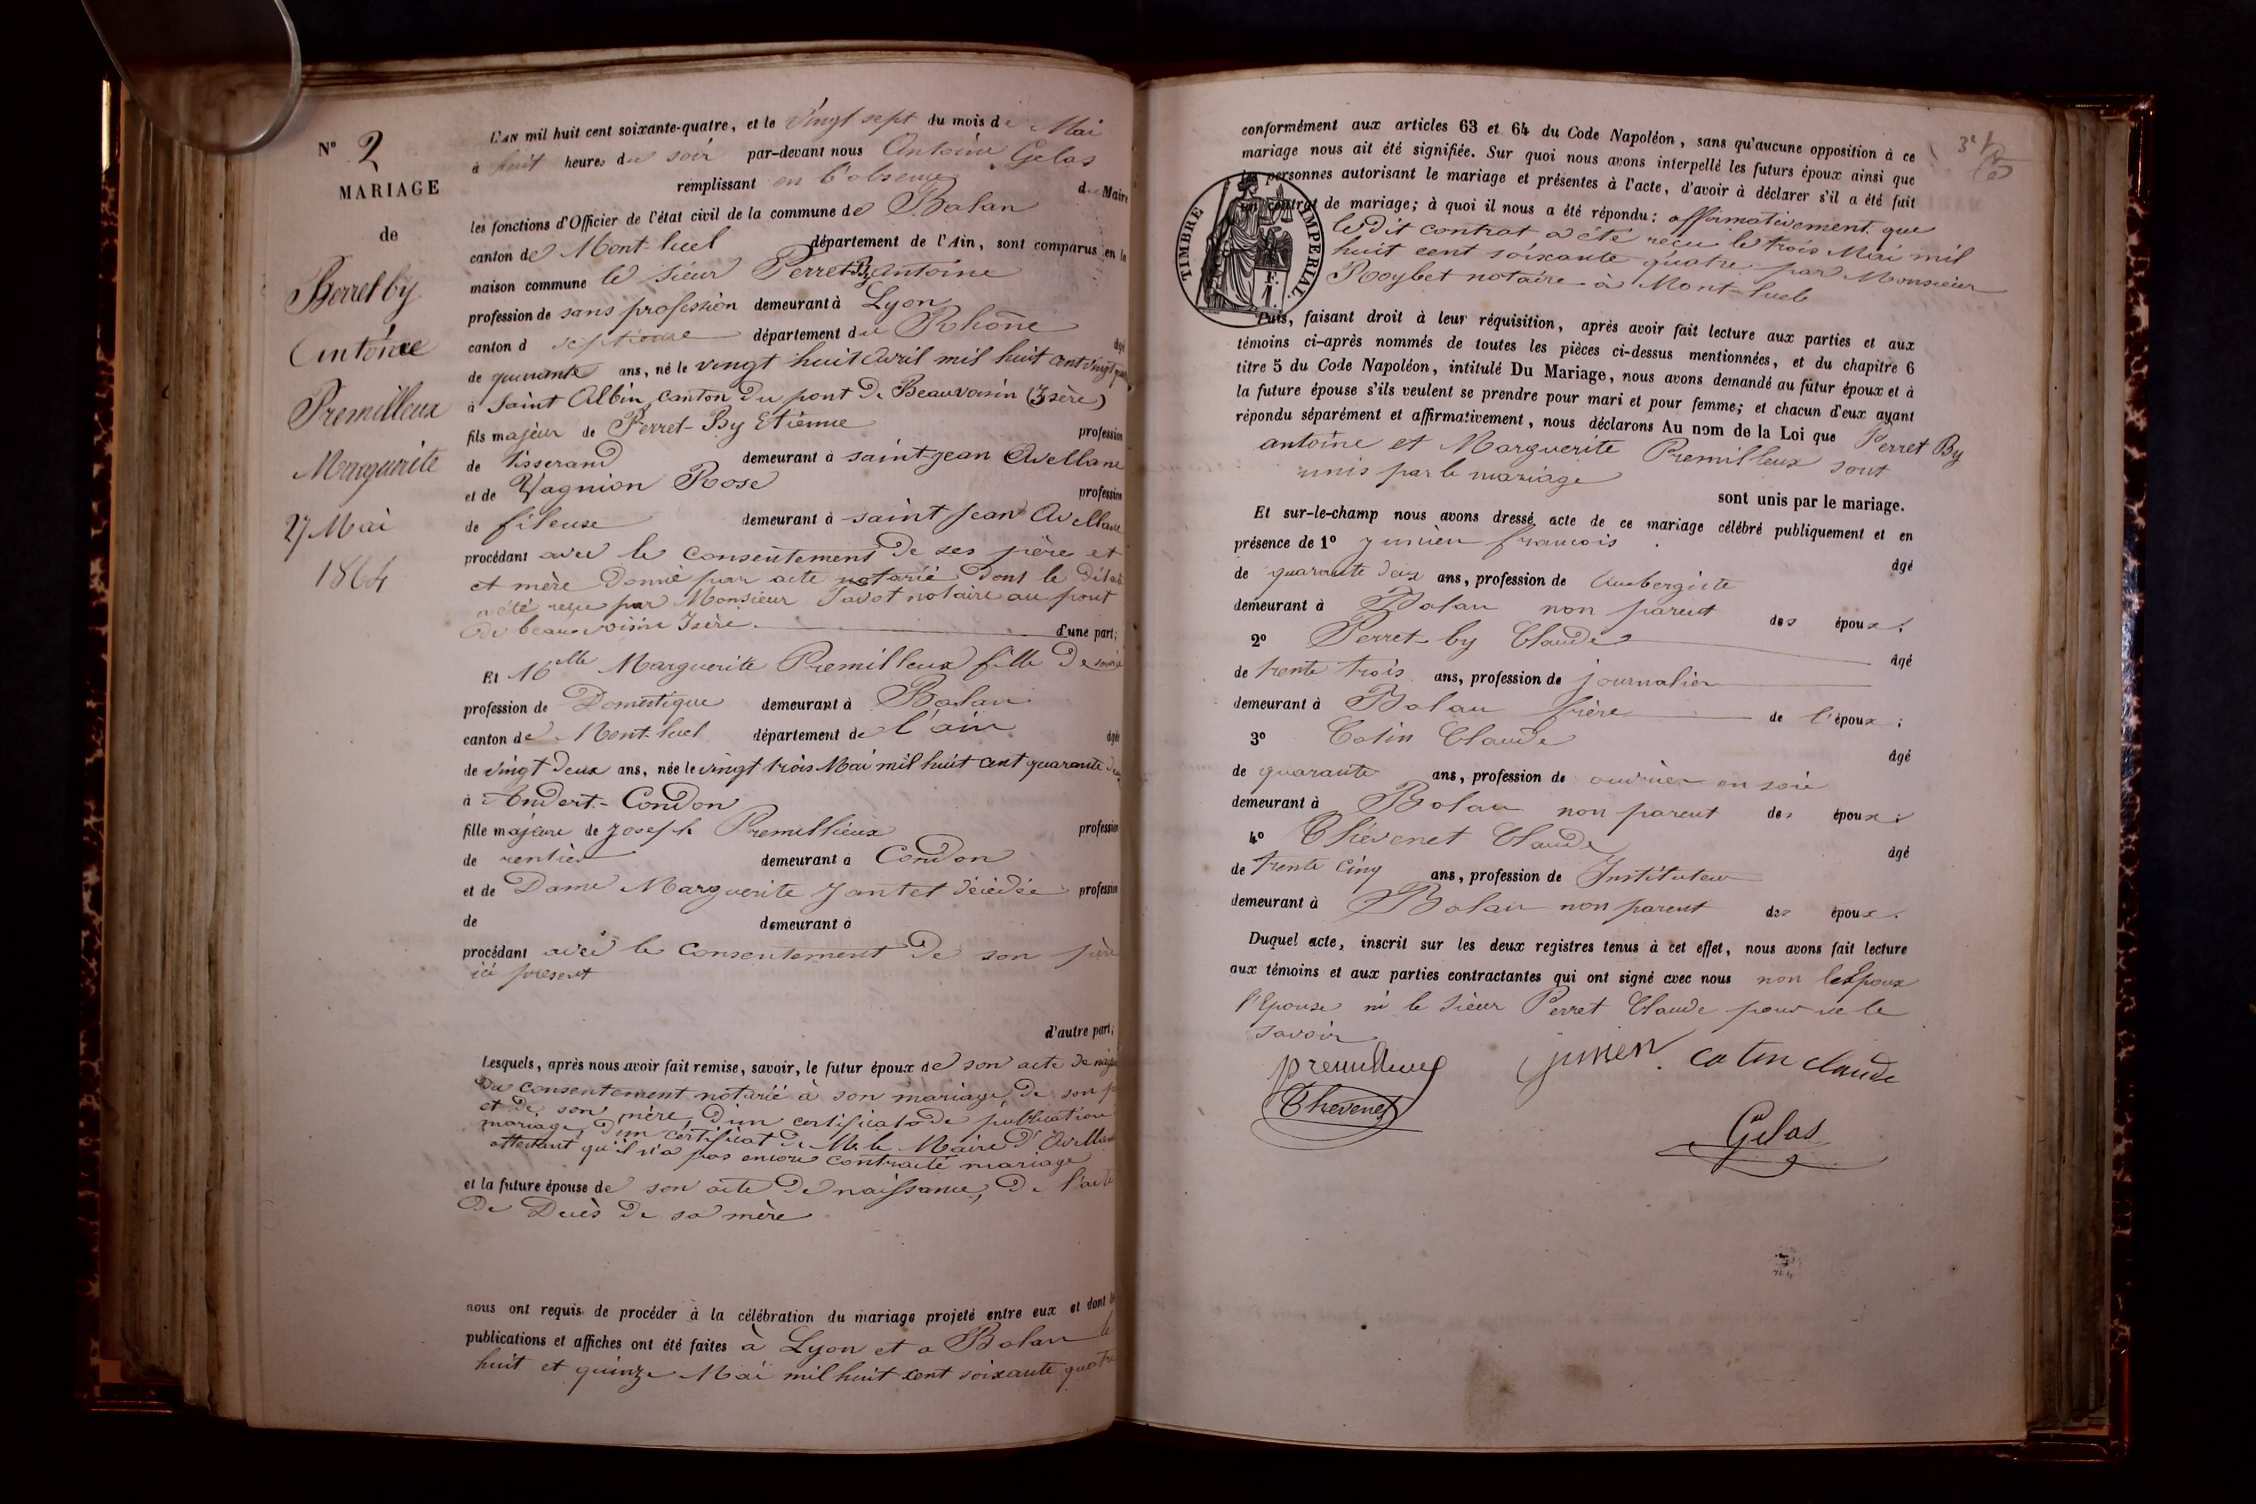 N° 2
MARIAGE
de
Perret by
Antoine
Premilleux
Marguerite
27 Mai
1864
L'AN mil huit cent soixante-quatre, et le vingt sept du mois de Mai
à huit heures du soir par-devant nous Antoine Gelas
remplissant en l'absence du Maire
les fonctions d'Officier de l'état civil de la commune de Balan
canton de Mont-luel département de l'Ain, sont comparus en la
maison commune le sieur Perret-By antoine
profession de sans profession demeurant à Lyon
canton d septième département du Rhône âgé
de quarante ans, né le vingt huit avril mil huit cent vingt quatre
à Saint Albin, canton du pont de Beauvoisin (Isère)
fils majeur de Perret-By Etienne profession
de tisserand demeurant à saint-jean Avellane
et de Vagnion Rose profession
de fileuse demeurant à saint jean Avellane
procédant avec le consentement de ses père et
et mère donné par acte notarié dont le détail
a été reçu par Monsieur notaire au pont
de beauvoisin Isère. d'une part;
Et Melle Marguerite Premilleux fille de
profession de Domestique demeurant à Balan
canton de Mont-luel département de l'ain âgée
de vingt deux ans, née le vingt trois Mai mil huit cent quarante deux
à Andert-Condon
fille majeure de Joseph Premillieux profession
de rentier demeurant à Condon
et de Dame Marguerite Jantet décédée profession
de demeurant à
procédant avec le consentement de son père
ici present
d'autre part;
Lesquels, après nous avoir fait remise, savoir, le futur époux de son acte de
du consentement notarié à son mariage, de son
et de son mère, d'un certificat de publication
mariage, d'un certificat de Mr le Maire d'Avellane
attestant qu'il n'a pas encore contracté mariage
et la future épouse de son acte de naissance, de l'acte
De Decès de sa mère
nous ont requis de procéder à la célébration du mariage projeté entre eux et dont les
publications et affiches ont été faites à Lyon et a Balan le
huit et quinze Mai mil huit cent soixante quatre
conformément aux articles 63 et 64 du Code Napoléon, sans qu'aucune opposition à ce
mariage nous ait été signifiée. Sur quoi nous avons interpellé les futurs époux ainsi que
les personnes autorisant le mariage et présentes à l'acte, d'avoir à déclarer s'il a été fait
un contrat de mariage; à quoi il nous a été répondu: affirmativement que
le dit contrat a été reçu le trois Mai mil
huit cent soixante quatre par Monsieur
Roybet notaire à Mont-luel
TIMBRE IMPERIAL.
Puis, faisant droit à leur réquisition, après avoir fait lecture aux parties et aux
témoins ci-après nommés de toutes les pièces ci-dessus mentionnées, et du chapitre 6
titre 5 du Code Napoléon, intitulé Du Mariage, nous avons demandé au futur époux et à
la future épouse s'ils veulent se prendre pour mari et pour femme; et chacun d'eux ayant
répondu séparément et affirmativement, nous déclarons Au nom de la Loi que Perret By
antoine et Marguerite Premilleux sont
unis par le mariage
sont unis par le mariage.
Et sur-le-champ nous avons dressé acte de ce mariage célébré publiquement et en
présence de 1° junien francois âgé
de quarante deux ans, profession de Aubergiste
demeurant à Balan non parent des époux;
2° Perret-by Claude âgé
de trente trois ans, profession de journalier
demeurant à Balan frère de l'époux;
3° Catin Claude âgé
de quarante ans, profession de ouvrier en soie
demeurant à Balan non parent des époux;
4° Thévenet Claude âgé
de trente cinq ans, profession de Instituteur
demeurant à Balan non parent des époux.
Duquel acte, inscrit sur les deux registres tenus à cet effet, nous avons fait lecture
aux témoins et aux parties contractantes qui ont signé avec nous non l'époux
l'Epouse ni le sieur Perret Claude pour ne le
savoir
premilleux junien. catin claude
Thevenet
Gelas